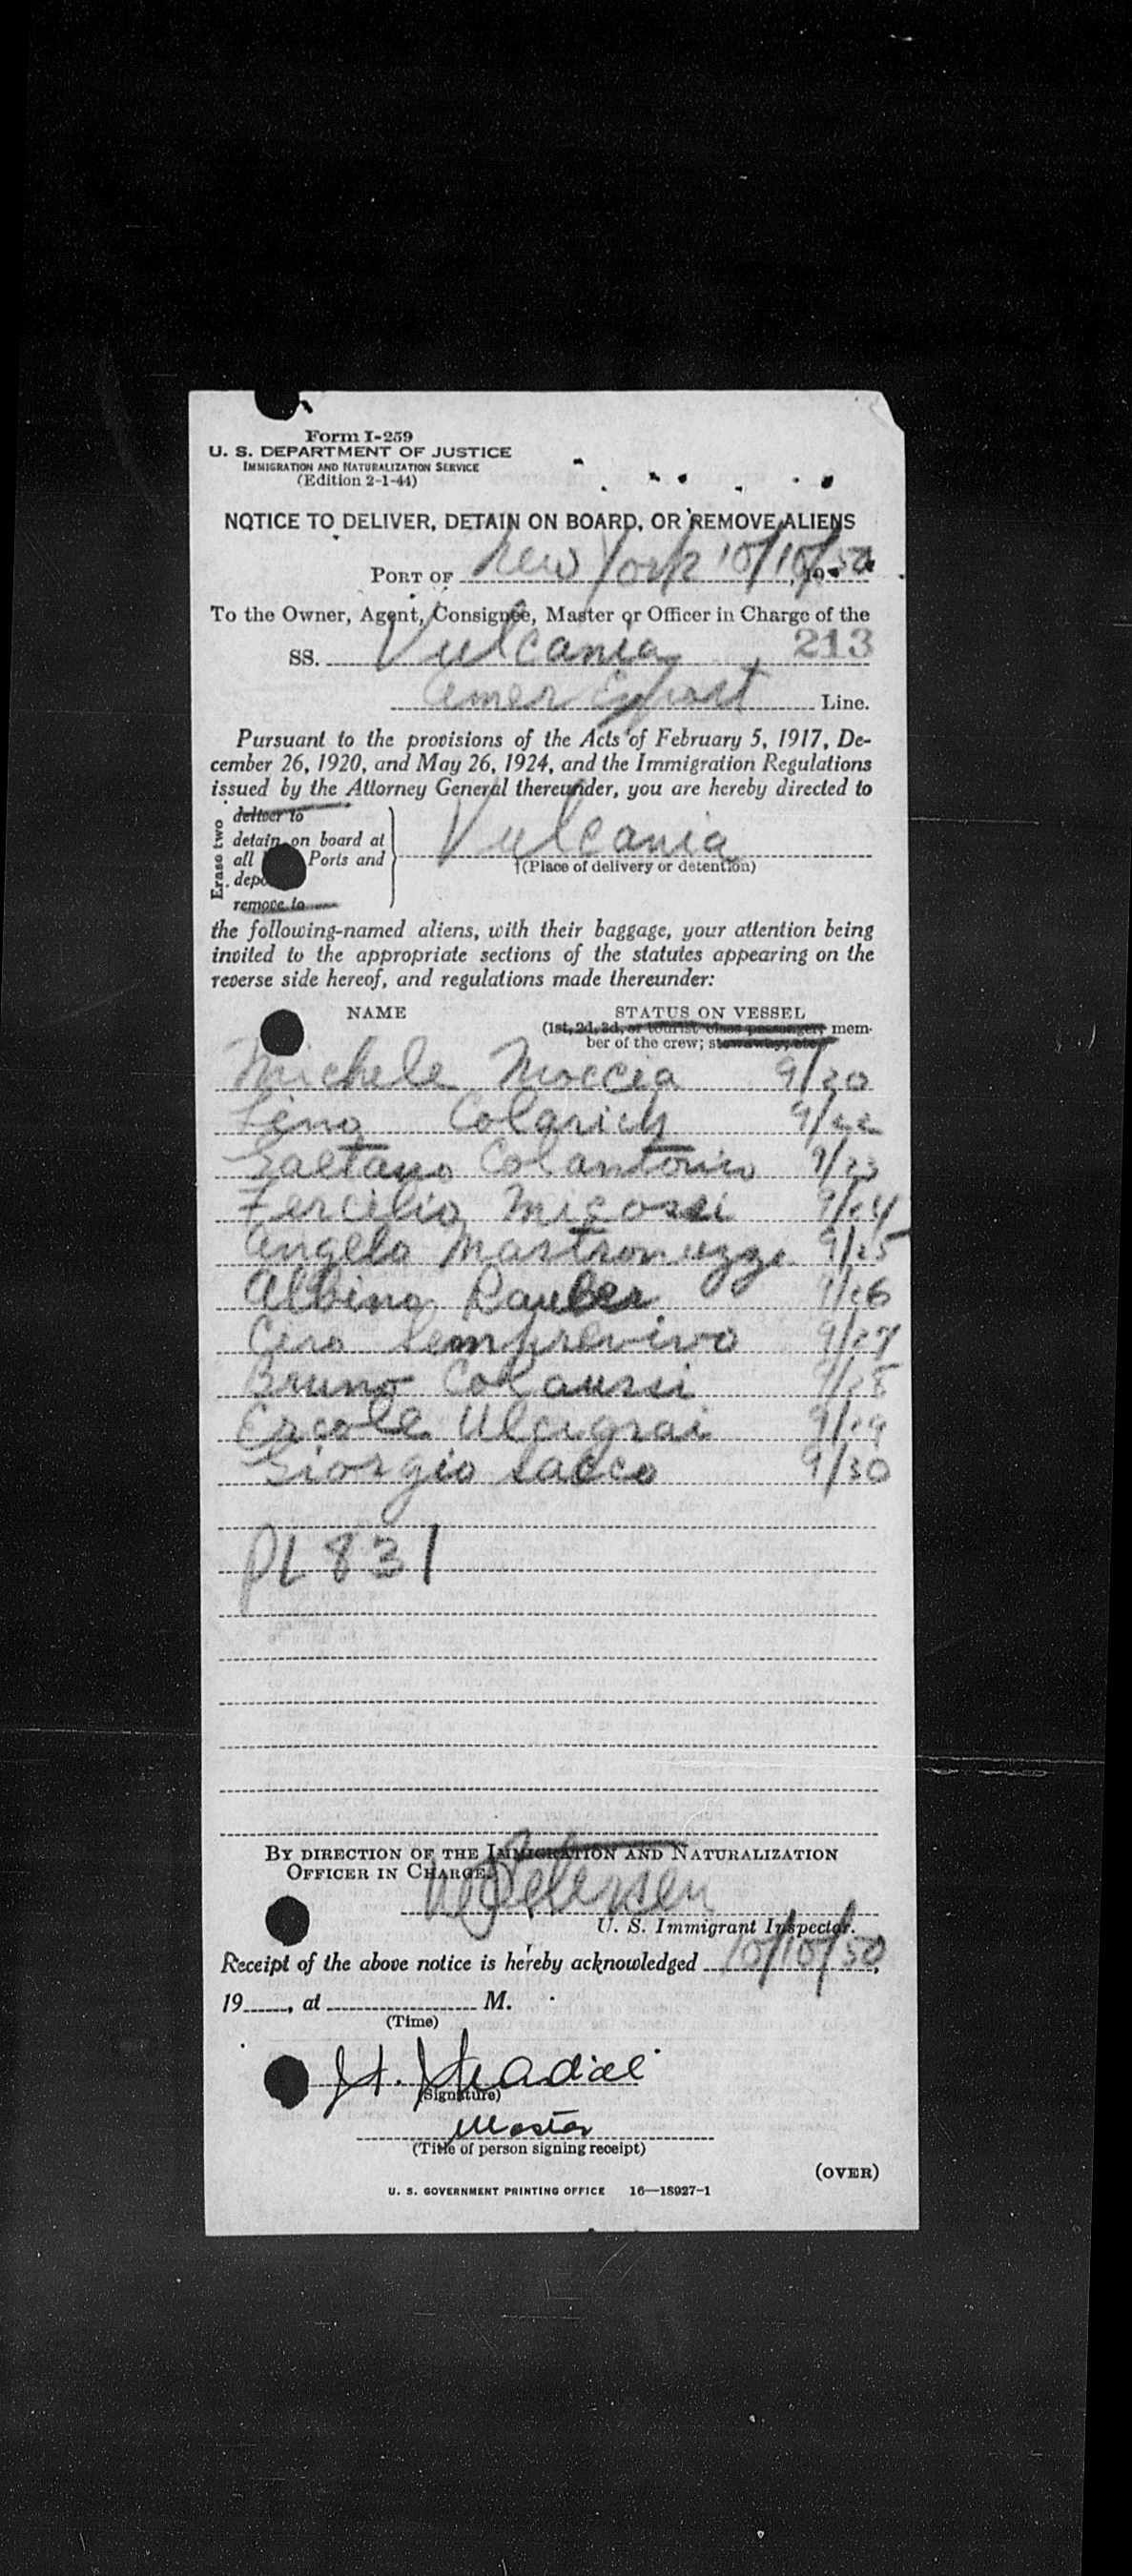 Form I-259
U. S. DEPARTMENT OF JUSTICE
IMMIGRATION AND NATURALIZATION SERVICE
(Edition 2-1-44)
NOTICE TO DELIVER, DETAIN ON BOARD, OR REMOVE ALIENS
PORT OF New York 10/10/50, 19
To the Owner, Agent, Consignee, Master or Officer in Charge of the
213
SS. Vulcania
Amer Export Line.
Pursuant to the provisions of the Acts of February 5, 1917, De-
cember 26, 1920, and May 26, 1924, and the Immigration Regulations
issued by the Attorney General thereunder, you are hereby directed to
Erase two
deliver to
detain on board at
all Ports and
remove to
Vulcania
(Place of delivery or detention)
the following-named aliens, with their baggage, your attention being
invited to the appropriate sections of the statutes appearing on the
reverse side hereof, and regulations made thereunder:
NAME STATUS ON VESSEL
(1st, 2d, 3d, or tourist class passenger; mem-
ber of the crew; stowaway, etc.)
Michele Moccia 9/20
Colarich 9/22
Gaetano Colantonio 9/23
Tercilio Micossi 9/24
Angelo Mastronuzzi 9/25
Albino Rauber 9/26
Ciro Semprevivo 9/27
Bruno Colaussi 9/28
Ercole Ulcigrai 9/29
Giorgio Sacco 9/30
PL 831
BY DIRECTION OF THE IMMIGRATION AND NATURALIZATION
OFFICER IN CHARGE.
Petersen
U. S. Immigrant Inspector.
Receipt of the above notice is hereby acknowledged 10/10/50,
19 , at M.
(Time)
(Signature)
Master
(Title of person signing receipt)
(OVER)
U. S. GOVERNMENT PRINTING OFFICE 16—18927-1